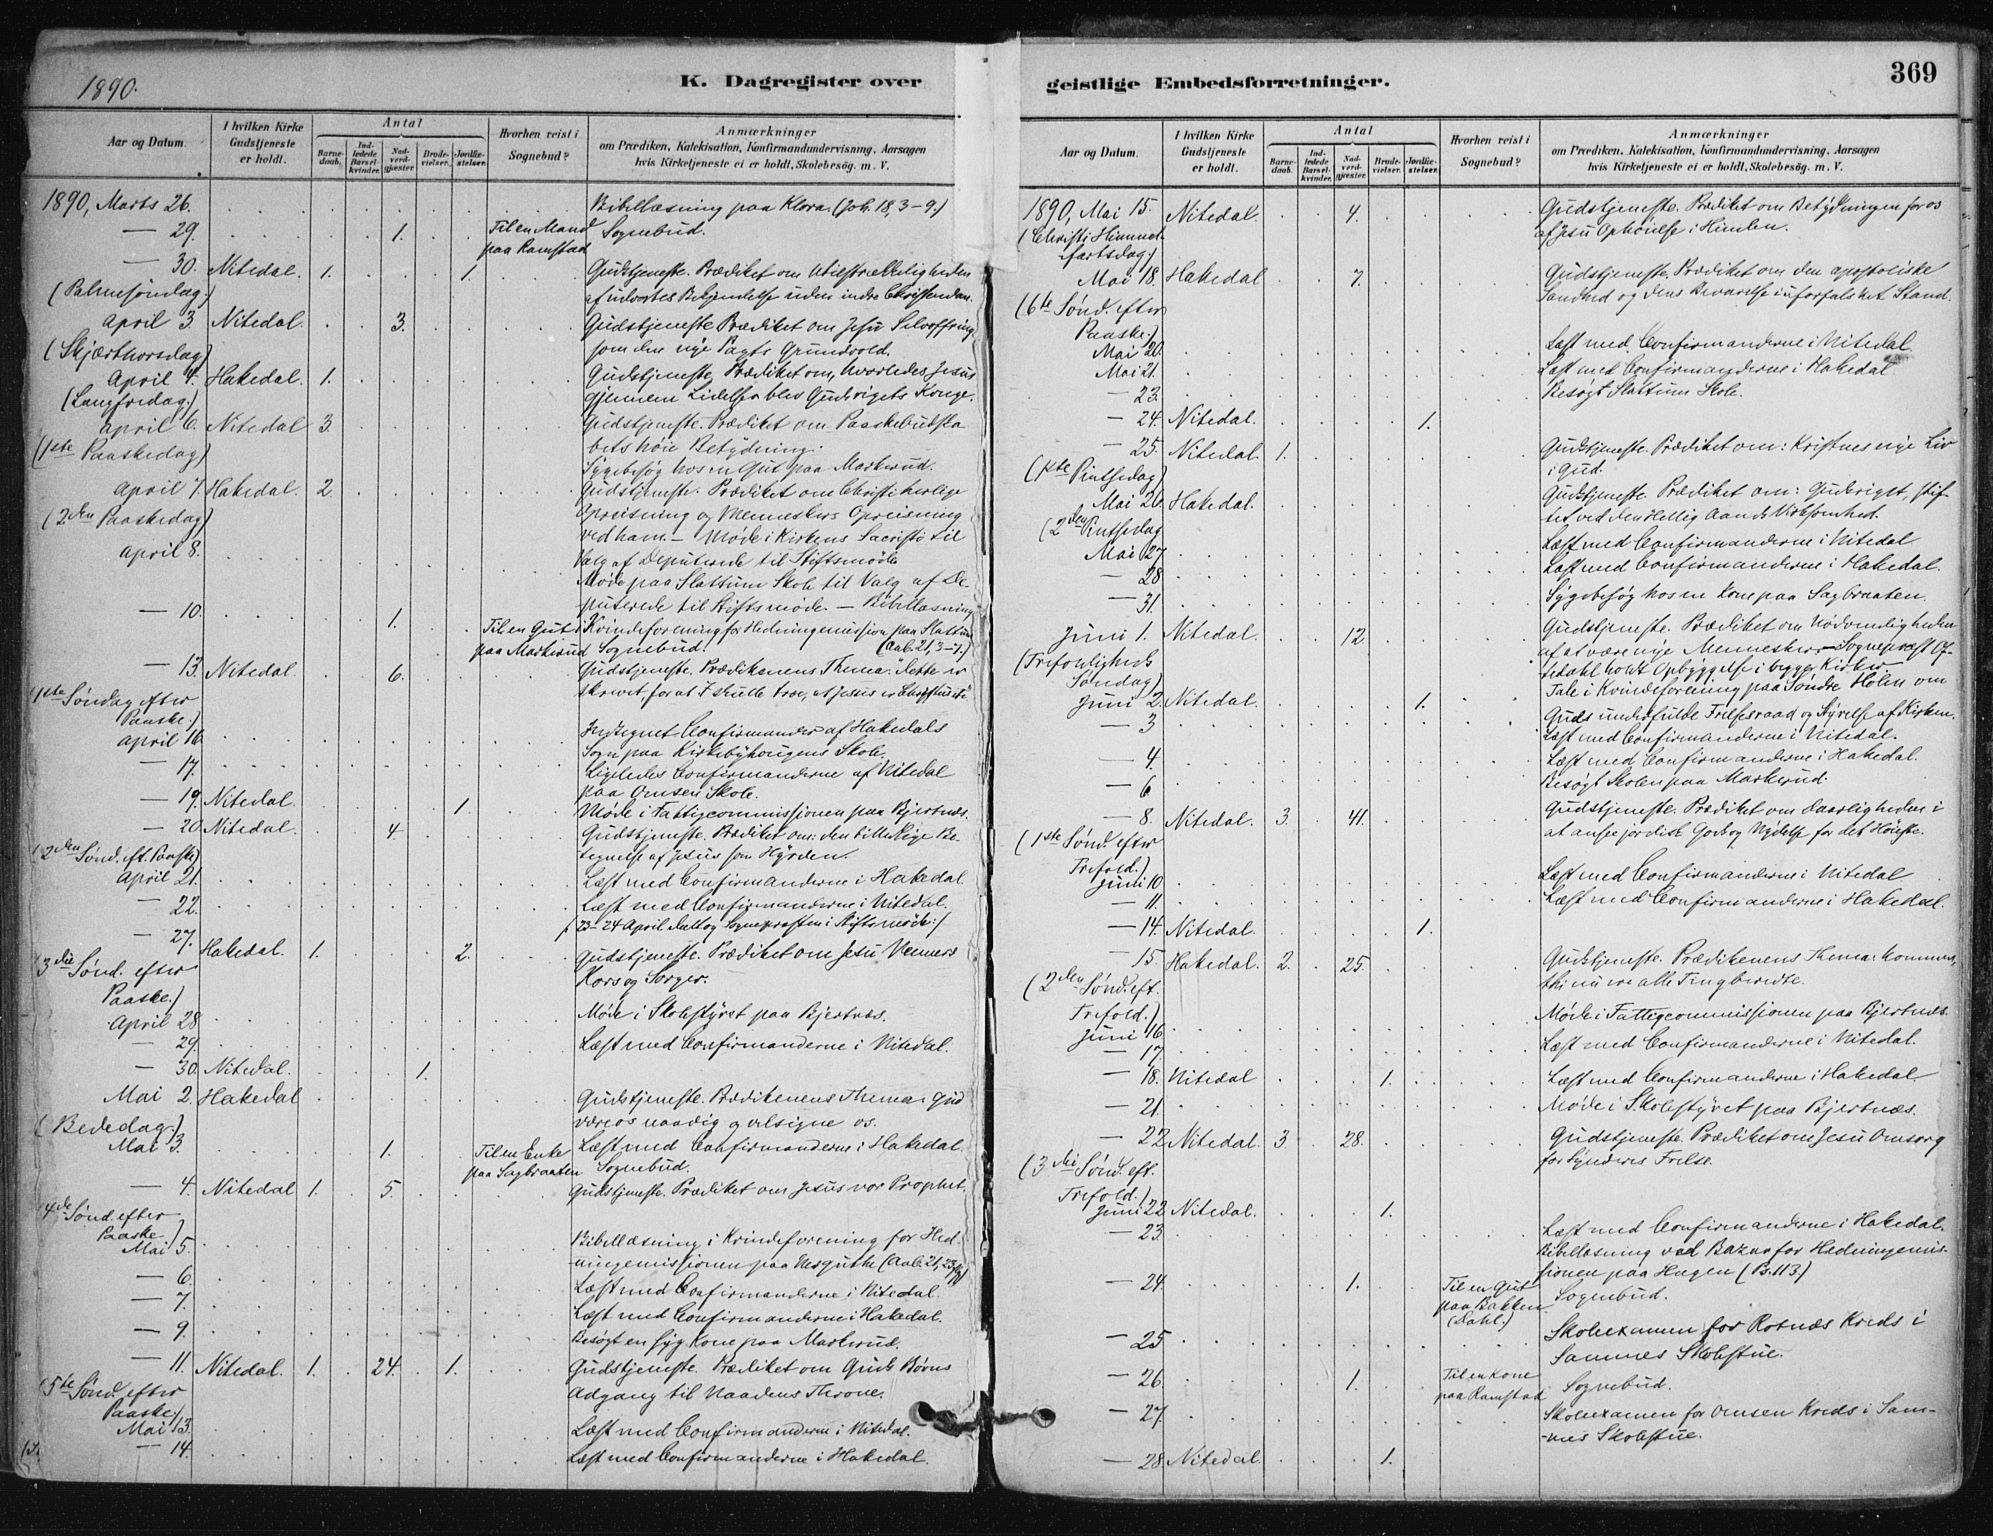 1890.
K. Dagregister over
Aar og Datum.
I hvilken Kirke Gudstjeneste er holdt.
Antal
Barnedaab.
Indledede Barselkvinder.
Nadverdgjæster
Brudevielser.
Jordfæstelser.
Hvorhen reist i Sognebud?
Anmærkninger
om Prædiken, Katekisation, Konfirmandundervisning, Aarsagen
hvis Kirketjeneste ei er holdt, Skolebesög. m. V.
1890, Marts 26. Bibellæsning paa Klora (Joh. 18, 3-9.)
— 29. 1. Til en Mand paa Ramstad Sognebud.
— 30. Nitedal. 1. 1. Gudstjeneste. Prædiket om Utilstrækkeligheden
(Palmesøndag.) af udvortes Bekjendelse uden indre Christendom.
April 3. Nitedal. 3. Gudstjeneste Prædiket om Jesu Selvoffring
(Skjærthorsdag) som den nye Pagts Grundvold.
April 4. Hakedal. 1. Gudstjeneste Prædiket om, hvorledes Jesus
(Langfredag.) gjennem Lidelse blev Gudsrigets Konge.
April 6. Nitedal 3. Gudstjeneste. Prædiket om Paaskebudska
(1ste Paaskedag) bets høie Betydning.
Sygebesøg hos en Gut paa Markerud.
April 7. Hakedal. 2. Gudstjeneste. Prædiket om Christi herlige
(2den Paaskedag) Opreisning og Menneskers Opreisning
ved ham. — Møde i Kirkens Sacristi til
April 8. Valg af Deputerede til Stiftsmøde
Møde paa Slattum Skole til Valg af De-
puterede til Stiftsmøde. — Bibellæsning i
— 10. 1. Til en Gut paa Markerud Kvindeforening for Hedningemission paa Slattum
Sognebud. (Aab. 21, 3-7.)
— 13. Nitedal. 6. Gudstjeneste. Prædikenens Thema: "dette er
(1ste Søndag efter Paaske.) skrevet, for at I skulle troe, at Jesus er Christus etc"
April 16. Indtegnet Confirmander af Hakedals
Sogn paa Kirkebyhougens Skole.
— 17. Ligeledes Confirmanderne af Nitedal
paa Ornsen Skole.
— 19. Nitedal. 1. Møde i Fattigcommissionen paa Bjertnæs.
— 20. Nitedal. 4. Gudstjeneste. Prædiket om: den billedlige Be-
(2den Sønd. eft. Paaske) tegnelse af Jesus som Hyrden.
April 21. Læst med Confirmanderne i Hakedal.
— 22. Læst med Confirmanderne i Nitedal.
(23-24 April deltog Sognepræsten i Stiftsmøde.)
— 27. Hakedal. 1. 2. Gudstjeneste. Prædiket om Jesu Venners
(3die Sønd. efter Paaske.) Kors og Sorger.
April 28 Møde i Skolestyret paa Bjertnæs.
— 29. Læst med Confirmanderne i Nitedal.
— 30. Nitedal. 1.
Mai 2. Hakedal Gudstjeneste. Prædikenens Thema: Gud
(Bededag.) være os naadig og velsigne os.
Mai 3. 1. Til en Enke paa Sagbraaten Læst med Confirmanderne i Hakedal.
Sognebud.
— 4. Nitedal 1. 5. Gudstjeneste. Prædiket om Jesus vor Prophet.
(4de Sønd. efter Paaske.)
Mai 5. Bibellæsning i Kvindeforening for Hed-
ningemissionen paa (Aab. 21, 23 ff)
— 6. Læst med Confirmanderne i Nitedal.
— 7. Læst med Confirmanderne i Hakedal.
— 9. Besøgt en syg Kone paa Markerud.
— 11. Nitedal. 1. 24. 1. Gudstjeneste. Prædiket om Guds Børns
(5te Sønd. efter Paaske.) Adgang til Naadens Throne.
Mai 13. Læst med Confirmanderne i Nitedal.
— 14. Læst med Confirmanderne i Hakedal.
geistlige Embedsforretninger.
369
Aar og Datum.
I hvilken Kirke Gudstjeneste er holdt.
Antal
Barnedaab.
Indledede Barselkvinder.
Nadverdgjæster
Brudevielser.
Jordfæstelser.
Hvorhen reist i Sognebud?
Anmærkninger
om Prædiken, Katekisation, Konfirmandundervisning, Aarsagen
hvis Kirketjeneste ei er holdt, Skolebesög. m. V.
1890, Mai 15. Nitedal. 4. Gudstjeneste. Prædiket om Betydningen for os
(Christi Himmelfartsdag) af Jesu Ophøielse i Himlen.
Mai 18. Hakedal 7. Gudstjeneste. Prædiket om den apostoliske
(6te Sønd. efter Paaske.) Sandhed og dens Bevarelse i uforfalsket Stand.
Mai 20. Læst med Confirmanderne i Nitedal
Mai 21. Læst med Confirmanderne i Hakedal
— 23. Besøgt Slattum Skole.
— 24. Nitedal. 1.
— 25. Nitedal. 1. Gudstjeneste. Prædiket om: Kristnes nye Liv
(1ste Pintsedag) i Gud.
Mai 26. Hakedal. Gudstjeneste. Prædiket om: Gudsriget, stif-
(2den Pintsedag) tet ved den Hellig Aands Virksomhed.
Mai 27 Læst med Confirmanderne i Nitedal
— 28 Læst med Confirmanderne i Hakedal.
— 31. Sygebesøg hos en Kone paa Sagbraaten.
Juni 1. Nitedal. 12 Gudstjeneste. Prædiket om Nødvendigheden
(Trefoldigheds Søndag) af at være nye Mennesker — Sognepræst Of-
tedahl holdt Opbyggelse i begge Kirker
Juni 2. Nitedal. 1. Tale i Kvindeforening paa Søndre Holm om
Guds underfulde Frelsesraad og Styrelse af Kirken.
— 3 Læst med Confirmanderne i Nitedal.
— 4. Læst med Confirmanderne i Hakedal.
— 6 Besøgt Skolen paa Markerud.
— 8. Nitedal. 3. 41. Gudstjeneste. Prædiket om Daarligheden i
(1ste Sønd. efter Trefold.) at ansee jordisk Gods og Nydelse for det Høieste.
Juni 10 Læst med Confirmanderne i Nitedal
— 11. Læst med Confirmanderne i Hakedal.
— 14. Nitedal. 1.
— 15. Hakedal. 2. 25. Gudstjeneste. Prædikenens Thema: kommer,
(2den Sønd. eft. Trefold.) thi nu ere alle Ting beredte.
Juni 16 Møde i Fattigcommissionen paa Bjertnæs.
— 17. Læst med Confirmanderne i Nitedal.
— 18. Nitedal 1. Læst med Confirmanderne i Hakedal.
— 21. Møde i Skolestyret paa Bjertnæs.
— 22 Nitedal 3. 28. Gudstjeneste. Prædiket om Jesu Omsorg
(3die Sønd. eft. Trefold.) for Synderes Frelse.
Juni 22 Nitedal. 1.
— 23. Læst med Confirmanderne i Hakedal.
Bibellæsning ved Bazar for Hedningemis-
sionen paa Hagen (Ps. 113)
— 24. 1. Til en Gut paa Bakken (Dahl.) Sognebud.
— 25 Skoleexamen for Rotnæs Kreds i
Samnes Skolestue.
— 26 1. Til en Kone paa Ramstad Sognebud.
— 27. Skoleexamen for Ornsen Kreds i Sam-
-nes Skolestue.
— 28. Nitedal. 1.